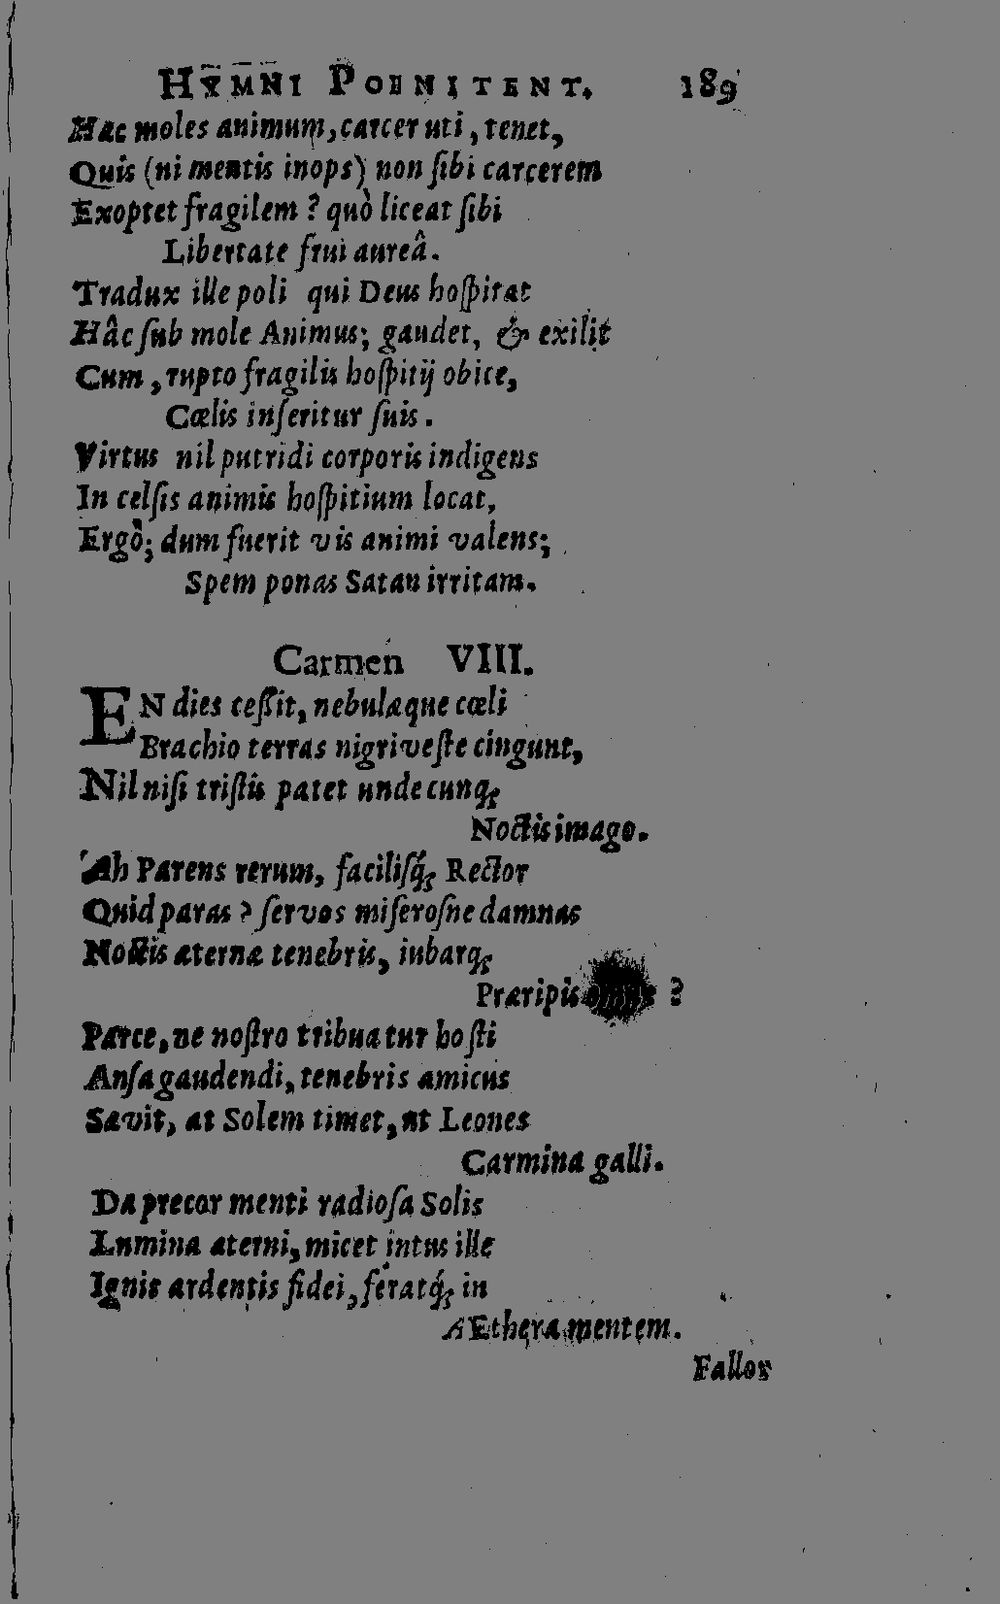 HYMNI POENITENT. 189
Hac moles animum, carcer uti, tenet,
Quis (ni mentis inops) non ſibi carcerem
Exoptet fragilem? quò liceat ſibi
Libertate frui aureâ.
Tradux ille poli qui Deus hoſpitat
Hâc ſub mole Animus; gaudet, & exilit
Cum, rupto fragilis hoſpitij obice,
Cœlis inſeritur ſuis.
Virtus nil putridi corporis indigens
In celſis animis hoſpitium locat,
Ergò; dum fuerit vis animi valens;
Spem ponas Satan irritam.
Carmen VIII.
EN dies ceſſit, nebulæque cœli
Brachio terras nigriveſte cingunt,
Nil niſi triſtis patet undecunq;
Noctis imago.
Ah Parens rerum, faciliſq́; Rector
Quid paras? ſervos miſeroſne damnas
Noctis æternæ tenebris, iubarq;
Præripis ?
Parce, ne noſtro tribuatur hoſti
Anſa gaudendi, tenebris amicus
Sævit, at Solem timet, ut Leones
Carmina galli.
Da precor menti radioſa Solis
Lumina æterni, micet intus ille
Ignis ardentis fidei, feratq́; in
Æthera mentem.
Fallor